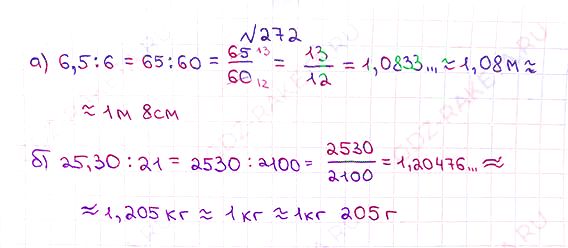 №272
а) 6,5 : 6 = 65 : 60 = 65 13 / 60 12 = 13/12 = 1,0833... ≈ 1,08 м ≈
≈ 1м 8см
б) 25,30 : 21 = 2530 : 2100 = 2530/2100 = 1,20476... ≈
≈ 1,205 кг ≈ 1 кг ≈ 1кг 205 г